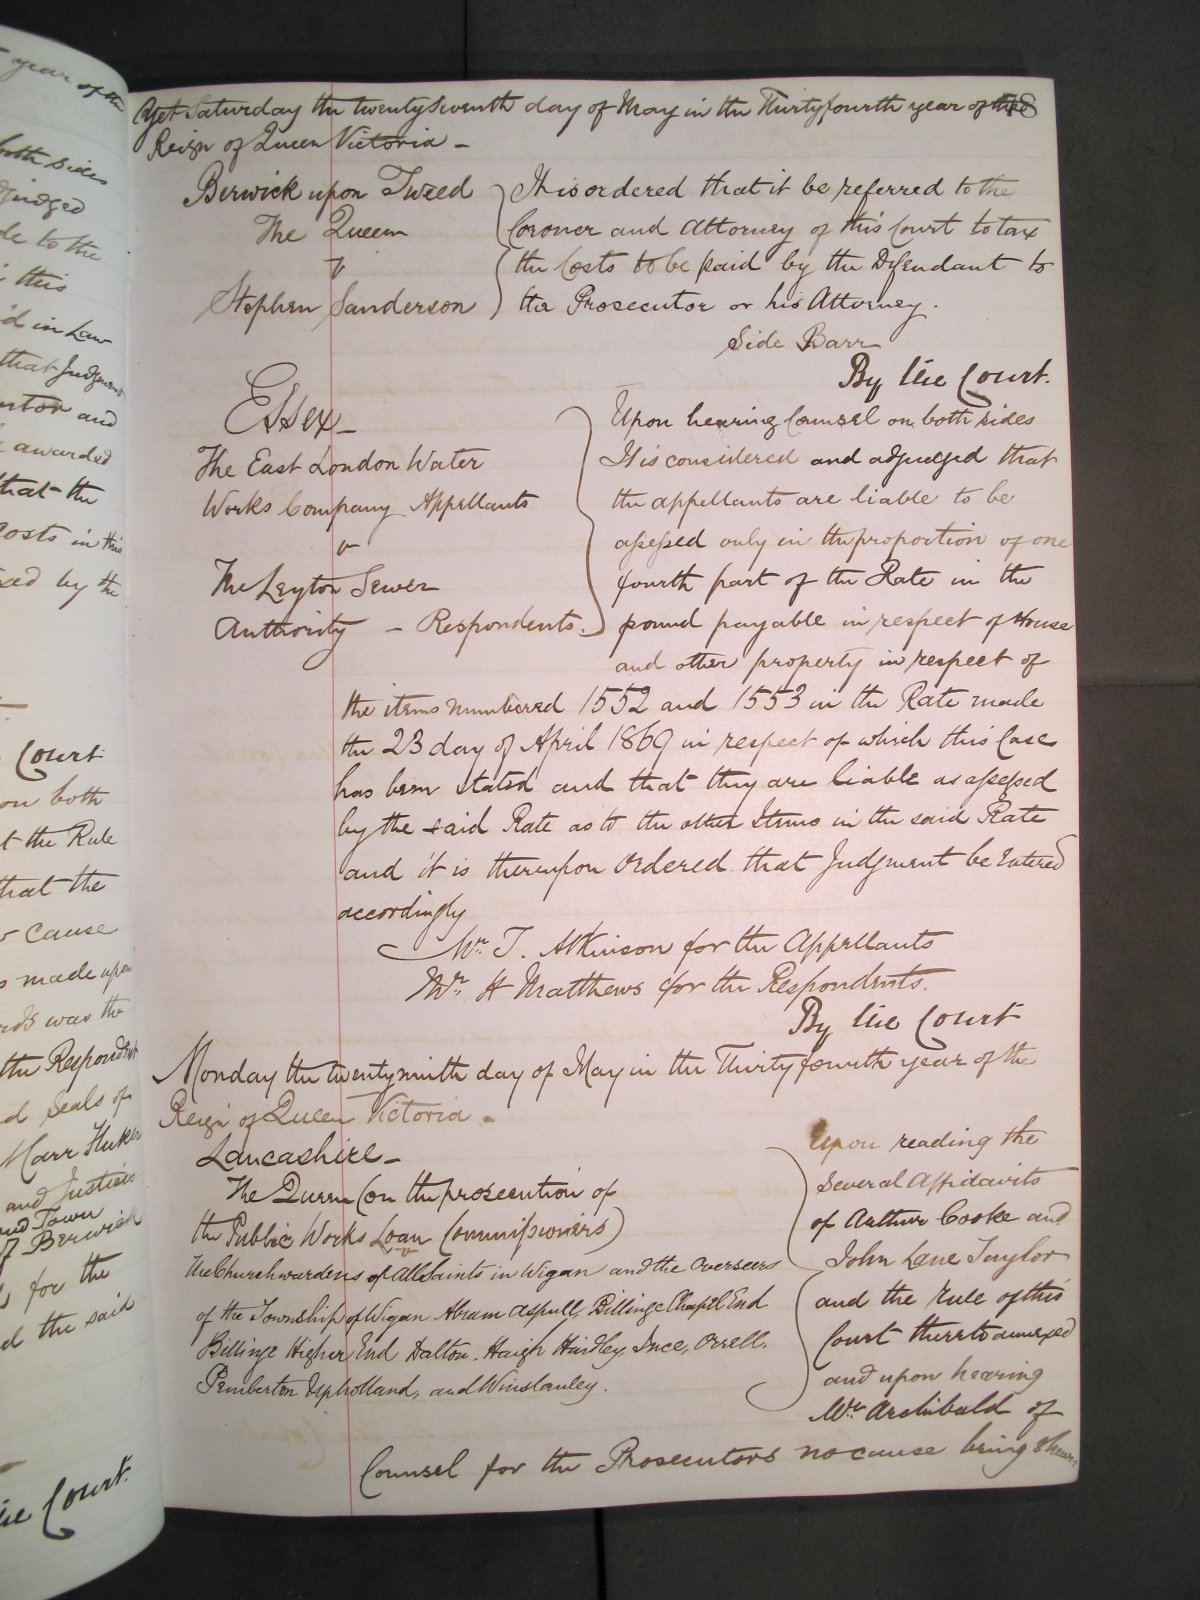 year of the
both sides
judged
de to the
this
d in Law
that Judgment
and
awarded
that the
costs in this
by the
Court
on both
the Rule
that the
cause
made upon
was the
the Respondents
d Seals of
Marr
and Justices
and Town
of Berwick
for the
d the said
Court.
Yet Saturday the twenty seventh day of May in the Thirty fourth year of the
Reign of Queen Victoria -
Berwick upon Tweed
The Queen
v
Stephen Sanderson
It is ordered that it be referred to the
Coroner and Attorney of this Court to tax
the Costs to be paid by the Defendant to
the Prosecutor or his Attorney.
Side Barr
By the Court.
Essex -
The East London Water
Works Company Appellants
v
The Leyton Sewer
Authority - Respondents.
Upon hearing Counsel on both sides
It is considered and adjudged that
the appellants are liable to be
assessed only in the proportion of one
fourth part of the Rate in the
pound payable in respect of House
and other property in respect of
the items numbered 1552 and 1553 in the Rate made
the 23 day of April 1869 in respect of which this Case
has been stated and that they are liable as assessed
by the said Rate as to the other Items in the said Rate
and it is thereupon Ordered that Judgment be Entered
accordingly
Mr. T. Atkinson for the Appellants
Mr. H Matthews for the Respondents.
By the Court
Monday the twenty ninth day of May in the Thirty fourth year of the
Reign of Queen Victoria -
Lancashire -
The Queen (on the prosecution of
the Public Works Loan Commissioners)
v
The Churchwardens of All Saints in Wigan and the Overseers
of the Township of Wigan Abram Aspull, Billinge Chapel End
Billinge Higher End Dalton. Haigh Hindley Ince, Orrell.
Pemberton Upholland, and Winstanley.
Upon reading the
Several Affidavits
of Arthur Cooke and
John Lane Taylor
and the Rule of this
Court thereto annexed
and upon hearing
Mr. Archibald of
Counsel for the Prosecutors no cause being shewn